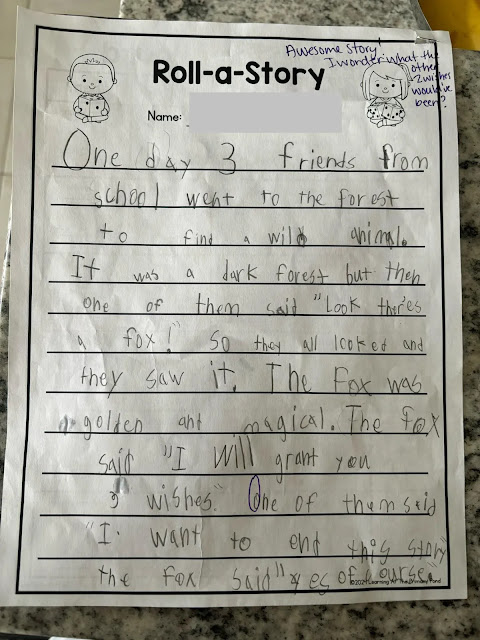 Awesome Story!
I wonder what the
other
2 wishes
would've
been?
Roll-a-Story
Name:
One day 3 friends from
school went to the forest
to find a wild animal.
It was a dark forest but then
one of them said "Look ther'es
a fox!" So they all looked and
they saw it. The Fox was
golden and magical. The fox
said "I will grant you
3 wishes." One of them said
"I want to end this story"
the fox said "yes of course"
©2021 Learning At The Primary Pond